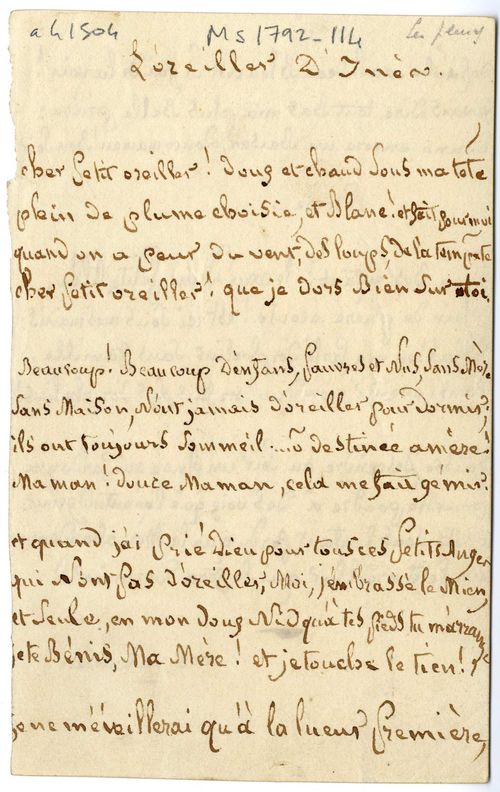 a 41504
Ms 1792-114
Les pleurs
L'oreiller D'Inèz.
cher petit oreiller ! doux et chaud sous ma tête
plein de plume choisie, et Blanc ! et fait pour moi
quand on a peur du vent, des loups, de la tempête
cher petit oreiller ! que je dors Bien sur toi.
Beaucoup ! Beaucoup D'enfans, pauvres et Nus, sans Mère
Sans Maison, N'ont jamais d'oreiller pour dormir ;
ils ont toujours sommeil.... ô destinée amère !
Maman ! douce Maman, cela me fait gémir.
et quand j'ai prié Dieu pour tous ces petits Anges
qui N'ont pas d'oreiller, Moi, j'embrasse le Mien,
et seule, en mon doux Nid qu'à tes pieds tu m'arranges
je te Bénis, Ma Mère ! et je touche le tien !
je ne m'éveillerai qu'à la lueur première,